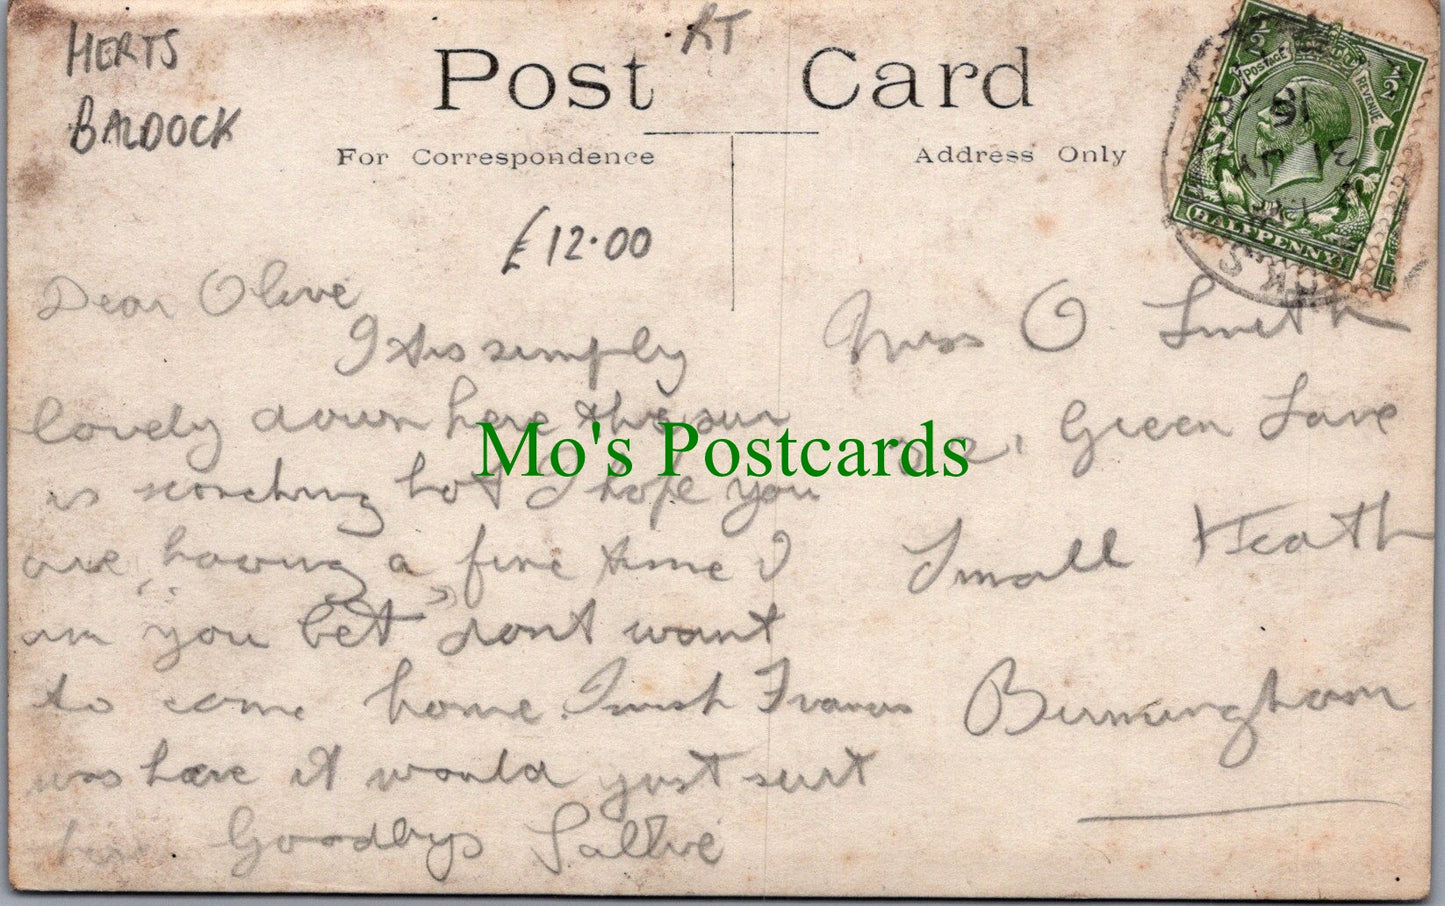 HERTS
BALDOCK
RT
Post Card
For Correspondence
Address Only
£12.00
POSTAGE REVENUE
1/2 1/2
HALFPENNY
31 JY
Dear Olive
I its simply
lovely down here the sun
is scorching hot I hope you
are having a fine time I
am "you bet" dont want
to come home. I wish Frances
was here it would just suit
her. Goodbye Sallie
Miss O Smith
Green Lane
Small Heath
Birmingham
Mo's Postcards